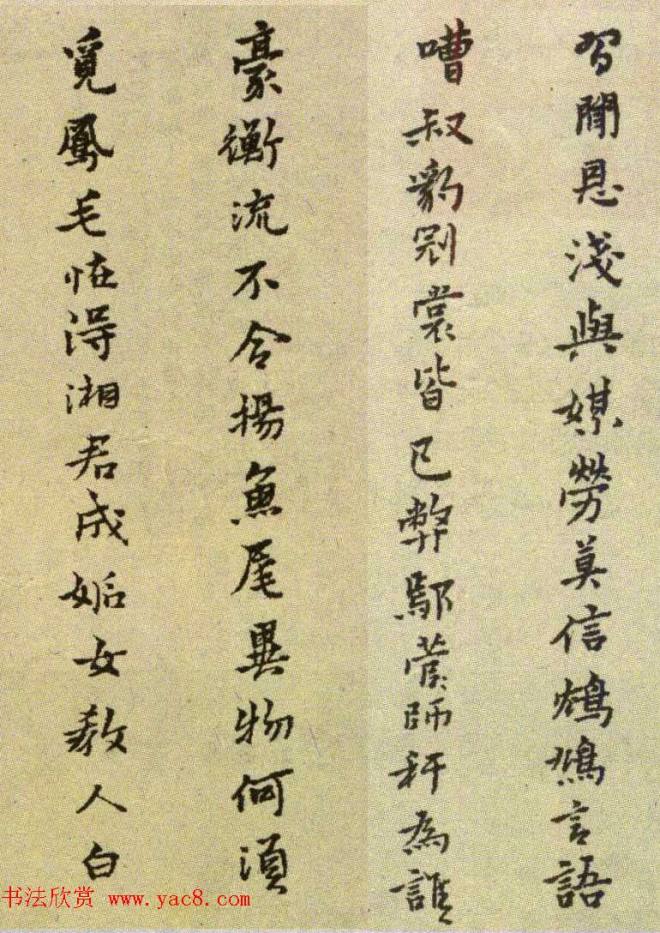 習聞恩淺與媒勞莫信鴆鳩言語
嘈叔豹別裳皆已弊鄢蔆師秤為誰
豪衡流不合揚魚尾異物何須
覓鳳毛恠得湘君成姤女教人白
书法欣赏 www.yac8.com